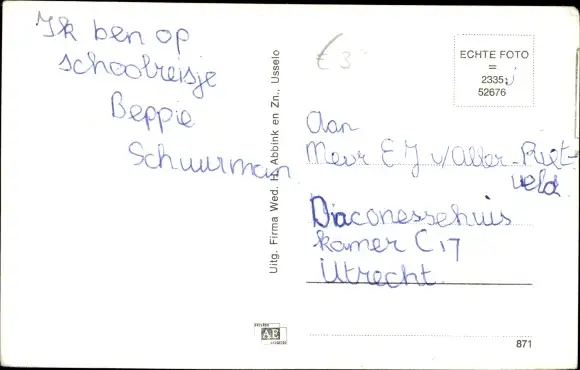 Ik ben op
schoolreisje
Beppie
Schuurman
Uitg. Firma Wed. H. Abbink en Zn., Usselo
€ 3
ECHTE FOTO
=
2335
52676
Aan
Mevr E J v/Alter-Riet-
veld
Diaconessehuis
kamer C 17
Utrecht
871